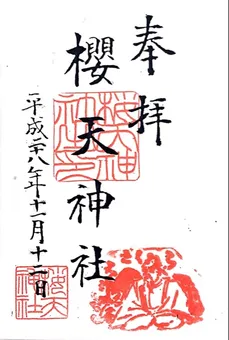 奉拝
櫻天神社
平成二八年十一月十二日
桜天
神社